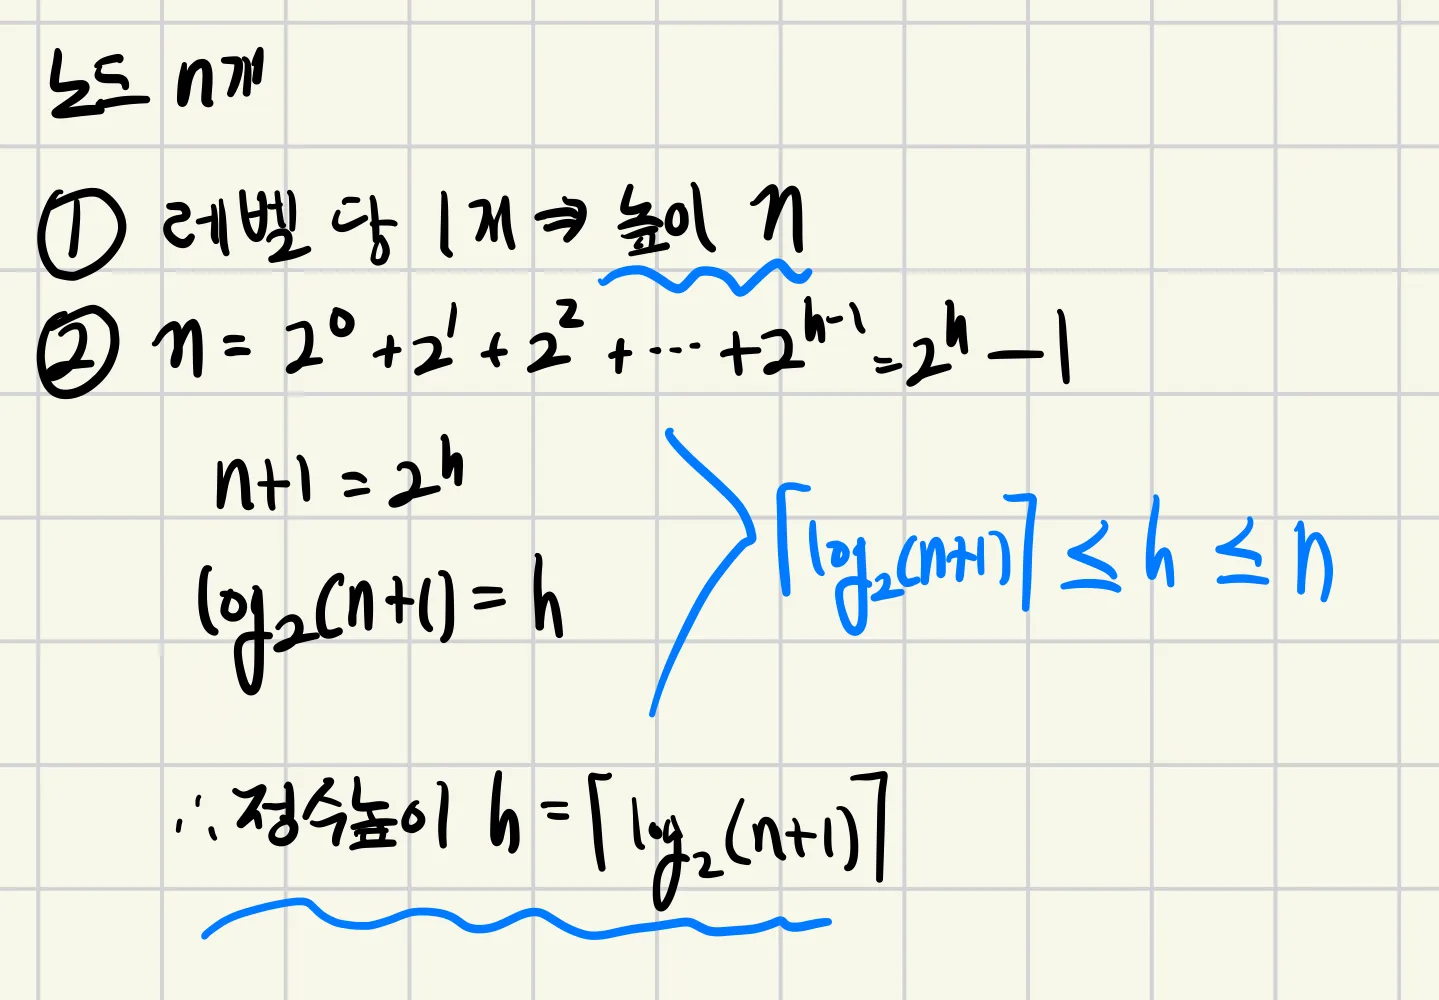 노드 n개
① 레벨 당 1개 ⇒ 높이 n
② n = 2⁰ + 2¹ + 2² + ⋯ + 2ʰ⁻¹ = 2ʰ - 1
n+1 = 2ʰ
log₂(n+1) = h
⌈log₂(n+1)⌉ ≤ h ≤ n
∴ 정수높이 h = ⌈log₂(n+1)⌉